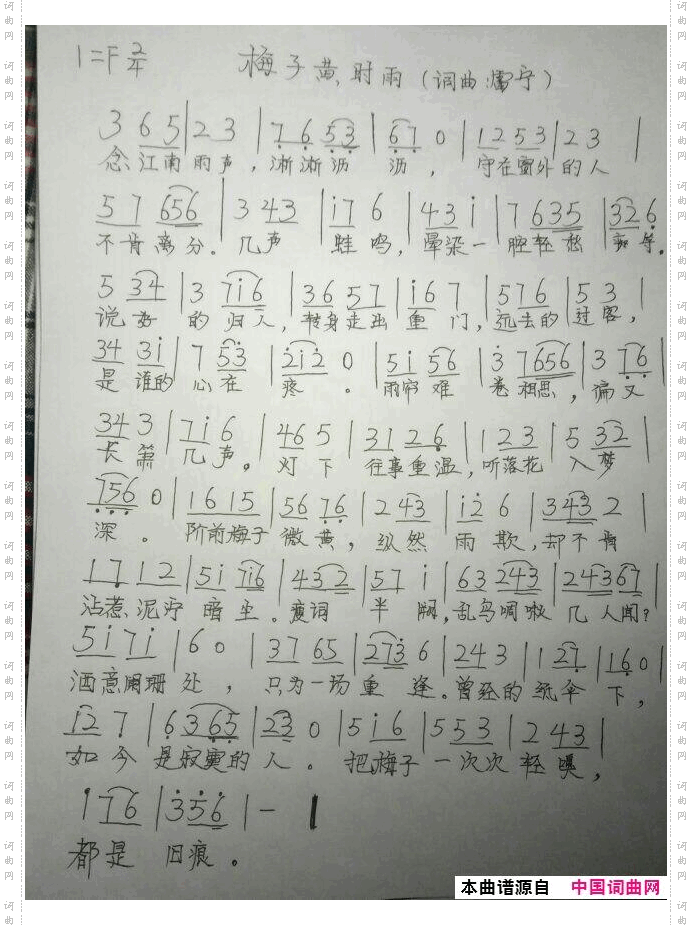 1=F 2/4 梅子黄时雨（词曲:雷宁）
3 6 5 | 2 3 | 7 6 5 3 | 6 7 0 | 1 2 5 3 | 2 3 |
念江南雨声，淅淅沥 沥，守在窗外的人
5 7 6 5 6 | 3 4 3 | i 7 6 | 4 3 i | 7 6 3 5 | 3 2 6
不肯离分。几声 蛙鸣，晕染一 腔轻愁
5 3 4 | 3 7 i 6 | 3 6 5 7 | i 6 7 | 5 7 6 | 5 3 |
说好 的归人，转身走出重门，远去的过客，
3 4 3 i | 7 5 3 | 2 i 2 0 | 5 i 5 6 | 3 7 6 5 6 | 3 7 6
是谁的心在 疼。雨帘难 卷相思，偏又
3 4 3 | 7 i 6 | 4 6 5 | 3 1 2 6 | 1 2 3 | 5 3 2 |
长箫 几声。灯下 往事重温，听落花入梦
7 5 6 0 | 1 6 1 5 | 5 6 7 6 | 2 4 3 | i 2 6 | 3 4 3 2 |
深。阶前梅子微黄，纵然 雨欺，却不肯
1 7 1 2 | 5 i 7 i 6 | 4 3 2 | 5 7 i | 6 3 2 4 3 | 2 4 3 6 7 |
沾惹泥泞 暗尘。瘦词 半阙，乱鸟啁啾 几人闻?
5 i 7 i | 6 0 | 3 7 6 5 | 2 7 3 6 | 2 4 3 | 1 2 7 | 1 6 0 |
酒意阑珊处，只为一场重逢。曾经的纸伞下，
i 2 7 | 6 3 6 5 | 2 3 0 | 5 i 6 | 5 5 3 | 2 4 3 |
如今是寂寞的人。把梅子一次次轻嗅，
i 7 6 | 3 5 6 | - |
都是 旧痕。
本曲谱源自 中国词曲网